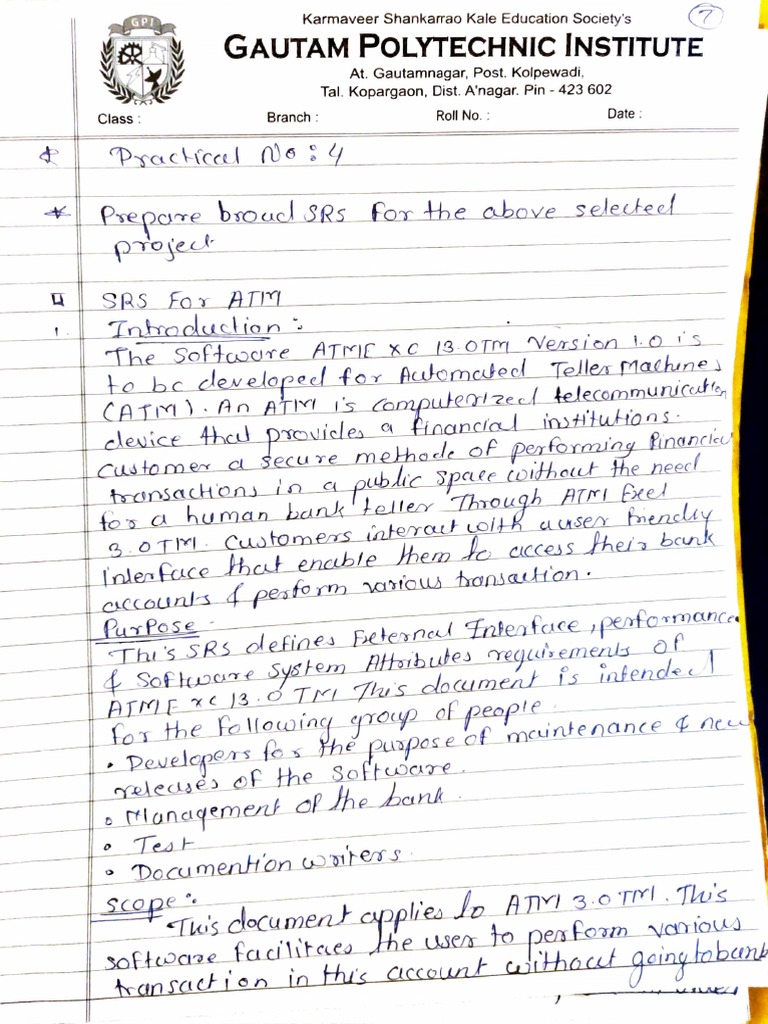 Karmaveer Shankarrao Kale Education Society's
7
GPI
GAUTAM POLYTECHNIC INSTITUTE
At. Gautamnagar, Post. Kolpewadi,
Tal. Kopargaon, Dist. A'nagar. Pin - 423 602
Class : Branch : Roll No. : Date :
Practical No : 4
Prepare broad SRS for the above selected
project
SRS For ATM
1. Introduction :
The Software ATMF xc 13.0TM Version 1.0 is
to be developed for Automated Teller Machines
(ATM). An ATM is computerized telecommunication
device that provides a financial institutions.
Customer a secure methode of performing financial
transactions in a public space without the need
for a human bank teller Through ATM Exel
3.0TM. Customers interact with a user friendly
interface that enable them to access their bank
accounts & perform various transaction.
Purpose
This SRS defines External Interface, performance
& Software System Attributes requirements of
ATMF xc 13.0 TM This document is intended
for the following group of people.
• Developers for the purpose of maintenance & new
releases of the Software.
• Management of the bank.
• Test
• Documention writers.
Scope :
This document applies to ATM 3.0TM. This
software facilitaes the user to perform various
transaction in this account without going to bank